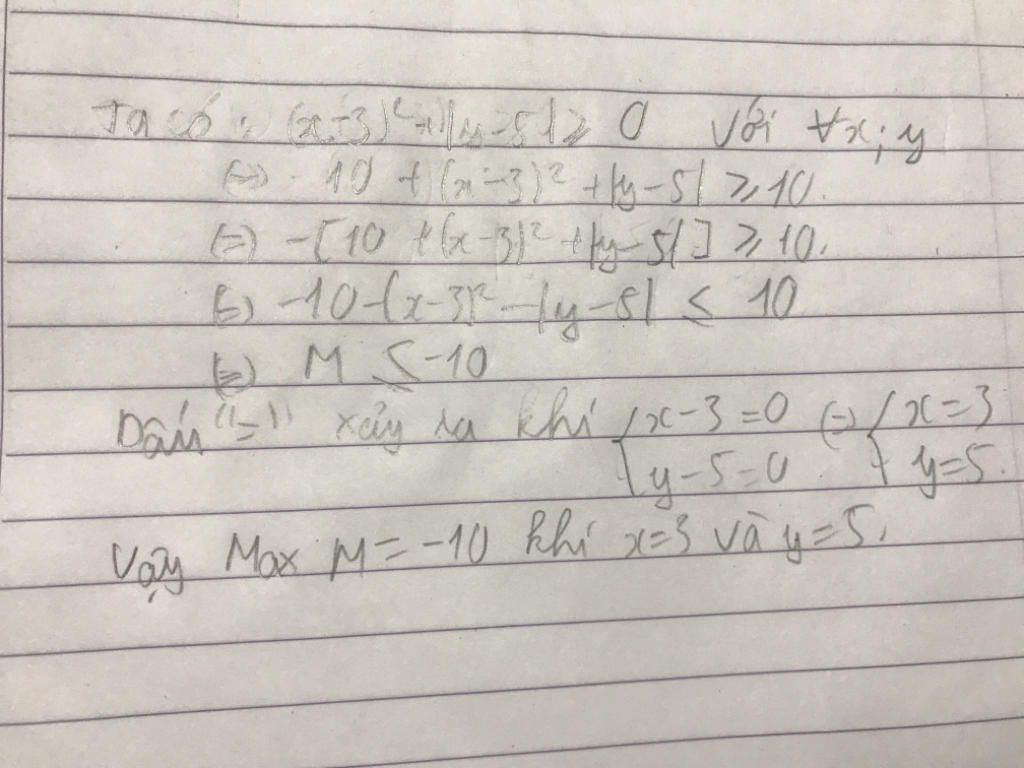 Ta có: (x-3)²+|y-5|≥ 0 với ∀x; y
(=) 10 + (x-3)² + |y-5| ≥ 10.
(=) -[10 + (x-3)² + |y-5|] ≥ 10.
(=) -10-(x-3)² - |y-5| ≤ 10
(=) M ≤ -10
Dấu "=" xảy ra khi { x-3=0 (=) { x=3
{ y-5=0 { y=5.
Vậy Max M = -10 khi x=3 và y=5.